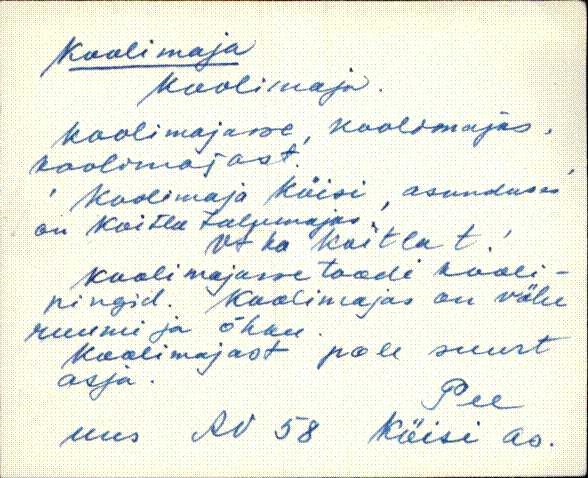 Koolimaja
Koolimaja.
Koolimajasse, koolimajas,
koolimajast.
Koolimaja Köisi asunduses
on Koitla talumajas.
Vt ka Koitla t.
Koolimajasse toodi kooli-
pingid. Koolimajas on vähe
ruumi ja õhku.
Koolimajast pole suurt
asja.
Pee
uus AV 58 Köisi as.